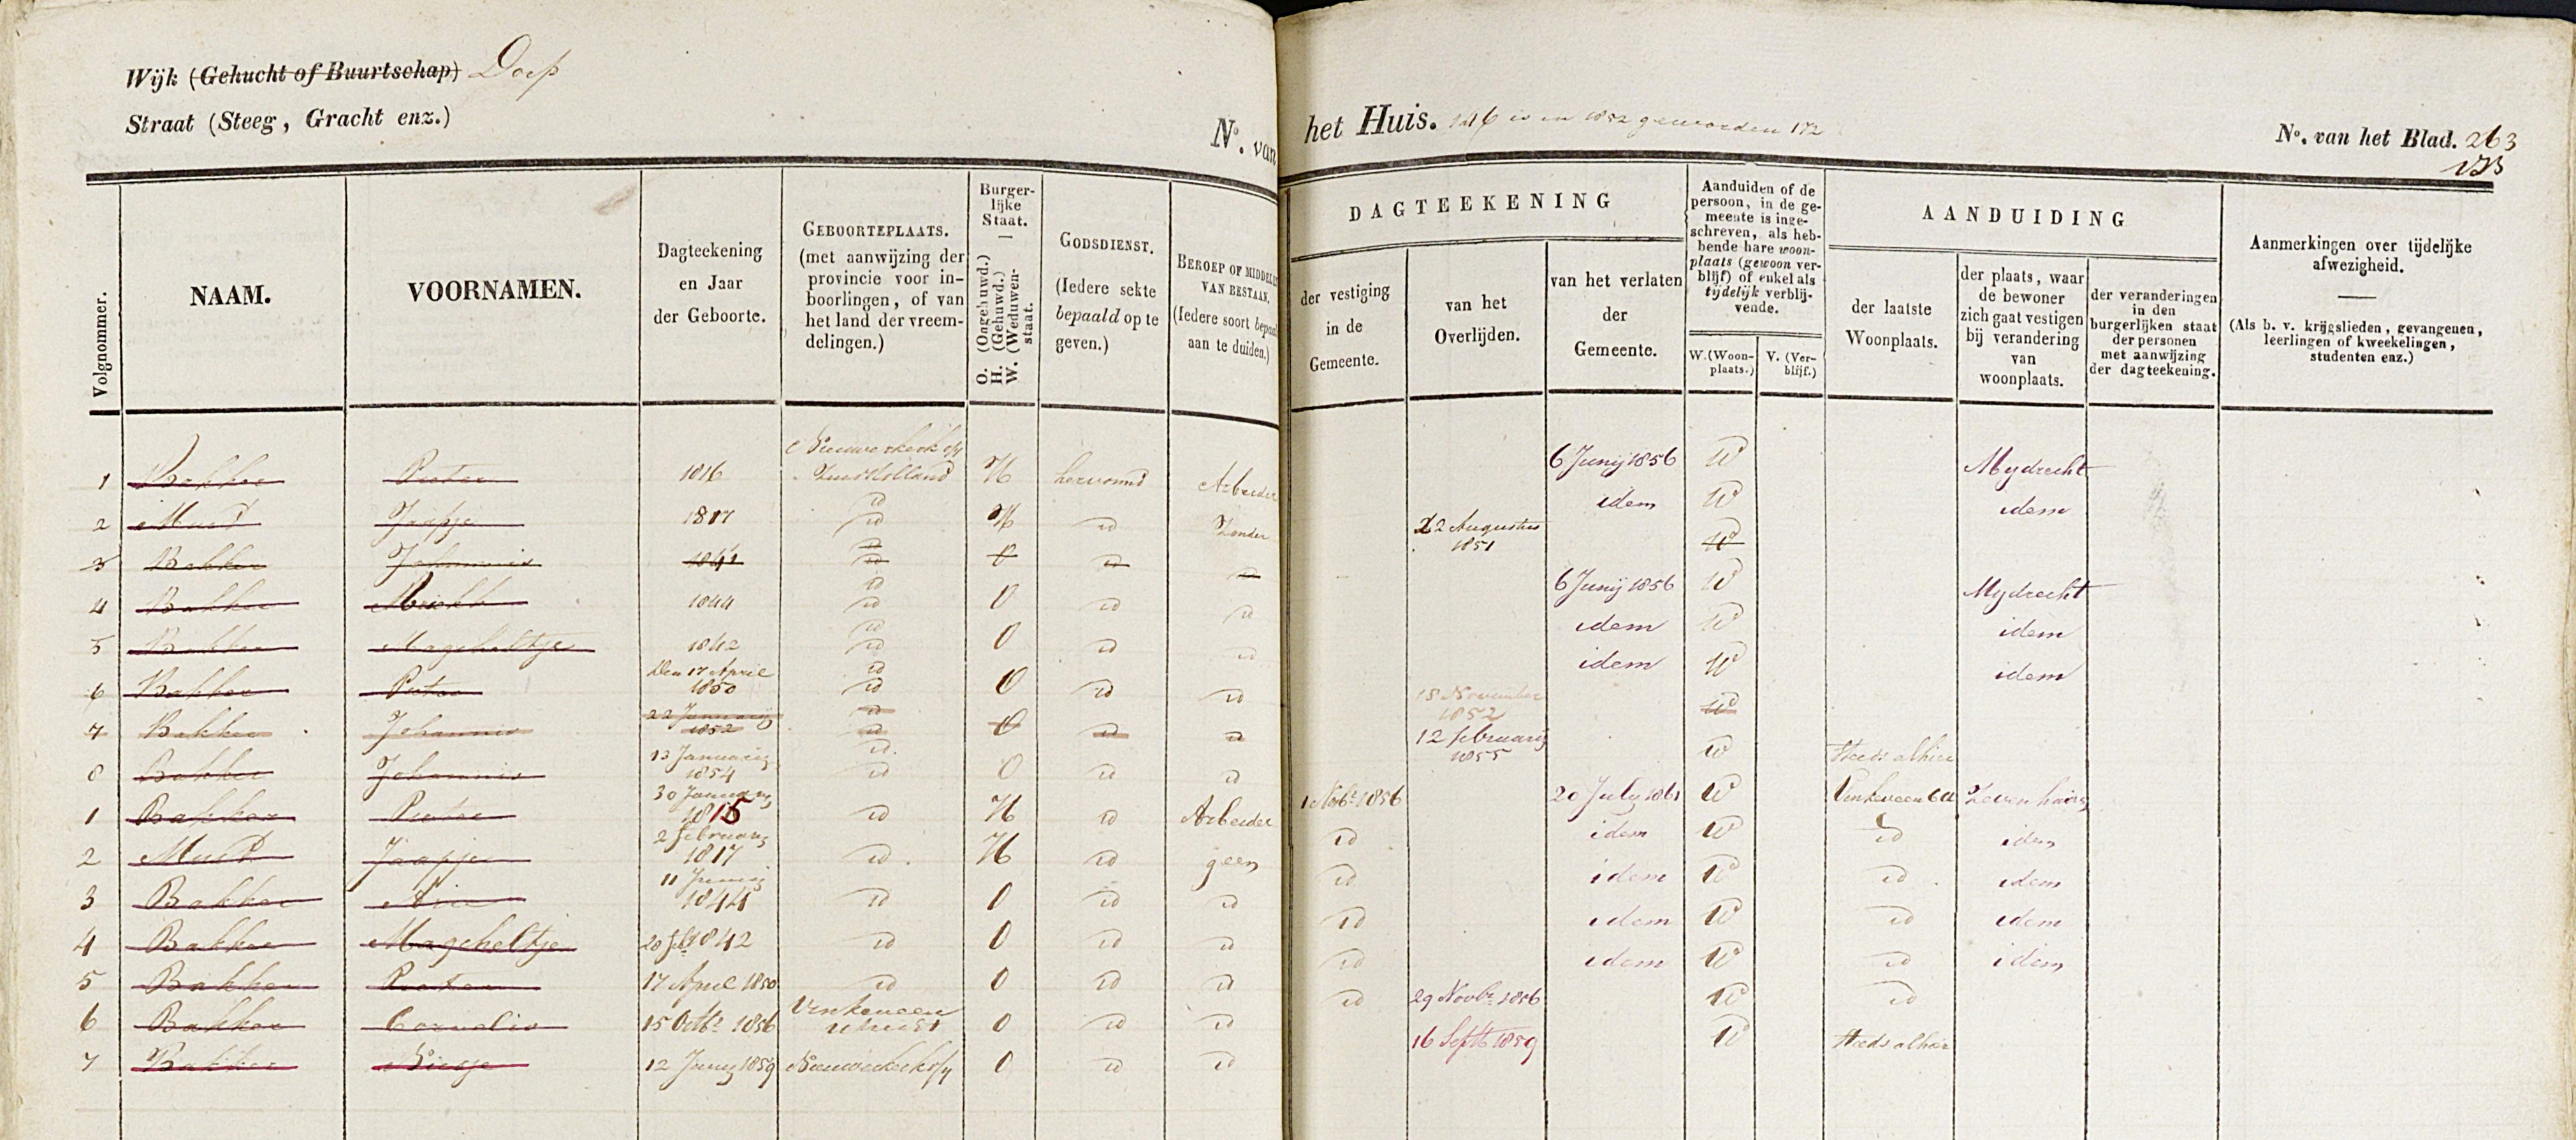 Wijk (Gehucht of Buurtschap) Dorp
Straat (Steeg, Gracht enz.)
No. van het Huis. 146 is in 1852 geworden 172
No. van het Blad. 263
173
Volgnommer.
NAAM.
VOORNAMEN.
Dagteekening
en Jaar
der Geboorte.
GEBOORTEPLAATS.
(met aanwijzing der
provincie voor in-
boorlingen, of van
het land der vreem-
delingen.)
Burger-
lijke
Staat.
O. (Ongehuwd.)
H. (Gehuwd.)
W. (Weduwen-
staat.
GODSDIENST.
(Iedere sekte
bepaald op te
geven.)
BEROEP OF MIDDEL
VAN BESTAAN.
(Iedere soort bepaald
aan te duiden.)
DAGTEEKENING
der vestiging
in de
Gemeente.
van het
Overlijden.
van het verlaten
der
Gemeente.
Aanduiden of de
persoon, in de ge-
meente is inge-
schreven, als heb-
bende hare woon-
plaats (gewoon ver-
blijf) of enkel als
tijdelijk verblij-
vende.
W. (Woon-
plaats.)
V. (Ver-
blijf.)
AANDUIDING
der laatste
Woonplaats.
der plaats, waar
de bewoner
zich gaat vestigen
bij verandering
van
woonplaats.
der veranderingen
in den
burgerlijken staat
der personen
met aanwijzing
der dagteekening.
Aanmerkingen over tijdelijke
afwezigheid.
(Als b. v. krijgslieden, gevangenen,
leerlingen of kweekelingen,
studenten enz.)
1 Bakker Pieter 1816 Nieuwerkerk o/y Zuid Holland H hervormd Arbeider 6 Junij 1856 W Mydrecht
2 Jaapje 1817 id id H id Zonder idem W idem
3 Bakker Johannis 1841 id id O id id 22 Augustus 1851 W
4 Bakker 1844 id id O id id 6 Junij 1856 W Mydrecht
5 Bakker Magcheltje 1842 id id O id id idem W idem
6 Bakker Pieter Den 17 April 1850 id id O id id idem W idem
7 Bakker Johannis 22 Januarij 1852 id id O id id 18 November 1852 W
8 Bakker Johannis 13 Januarij 1854 id id O id id 12 februarij 1855 W Steeds alhier
1 Bakker Pieter 30 January 1815 id H id Arbeider 1 Novbr 1856 20 July 1861 W Vinkeveen Zevenhuizen
2 Jaapje 2 february 1817 id H id geen id idem W id idem
3 Bakker Arie 11 Junij 1844 id O id id id idem W id idem
4 Bakker Magcheltje 20 feb 1842 id O id id id idem W id idem
5 Bakker Pieter 17 April 1850 id O id id id idem W id idem
6 Bakker Cornelis 15 Octbr 1856 Vinkeveen utrecht O id id id 29 Novbr 1856 W id
7 Bakker 12 Juny 1859 Nieuwerkerk o/y O id id 16 Septb 1859 W Steeds alhier